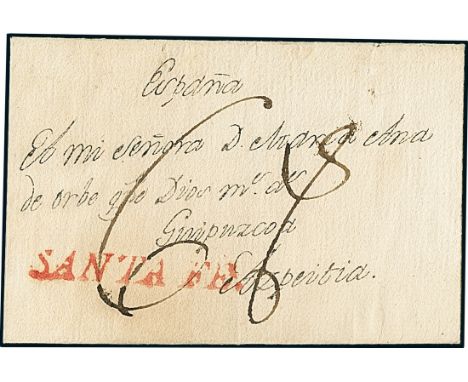 España
A mi Señora D. Maria Ana
de Orbe que Dios m.s a.s
Guipuzcoa
SANTA FE.
Azpeitia.